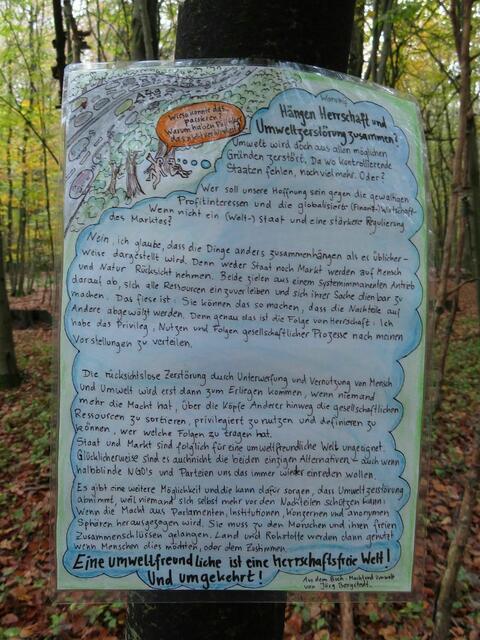 A49
Wieso konnte das
passieren?
Warum haben
das nicht
Hängen Herrschaft und
Umweltzerstörung zusammen?
Umwelt wird doch aus allen möglichen
Gründen zerstört. Da wo kontrollierende
Staaten fehlen, noch viel mehr. Oder?
Wer soll unsere Hoffnung sein gegen die gewaltigen
Profitinteressen und die globalisierte (Finanz-)Wirtschaft
Wenn nicht ein (Welt-) Staat und eine stärkere Regulierung
des Marktes?
Nein, ich glaube, dass die Dinge anders zusammenhängen als es üblicher-
weise dargestellt wird. Denn weder Staat noch Markt werden auf Mensch
und Natur Rücksicht nehmen. Beide zielen aus einem systemimmanenten Antrieb
darauf ab, sich alle Ressourcen einzuverleiben und sich ihrer Sache dienbar zu
machen. Das fiese ist: Sie können das so machen, dass die Nachteile auf
Andere abgewälzt werden. Denn genau das ist die Folge von Herrschaft: Ich
habe das Privileg, Nutzen und Folgen gesellschaftlicher Prozesse nach meinen
Vorstellungen zu verteilen.
Die rücksichtslose Zerstörung durch Unterwerfung und Vernutzung von Mensch
und Umwelt wird erst dann zum Erliegen kommen, wenn niemand
mehr die Macht hat, über die Köpfe Anderer hinweg die gesellschaftlichen
Ressourcen zu sortieren, privilegiert zu nutzen und definieren zu
können, wer welche Folgen zu tragen hat.
Staat und Markt sind folglich für eine umweltfreundliche Welt ungeeignet.
Glücklicherweise sind es auch nicht die beiden einzigen Alternativen - auch wenn
halbblinde NGO's und Parteien uns das immer wieder einreden wollen.
Es gibt eine weitere Möglichkeit und die kann dafür sorgen, dass Umweltzerstörung
abnimmt, weil niemand sich selbst mehr vor den Nachteilen schützen kann:
Wenn die Macht aus Parlamenten, Institutionen, Konzernen und anonymen
Sphären herausgezogen wird. Sie muss zu den Menschen und ihren freien
Zusammenschlüssen gelangen. Land und Rohstoffe werden dann genutzt
wenn Menschen dies möchten, oder dem zustimmen.
Eine umweltfreundliche ist eine herrschaftsfreie Welt!
Und umgekehrt!
Aus dem Buch: Macht und Umwelt
von Jörg Bergstedt